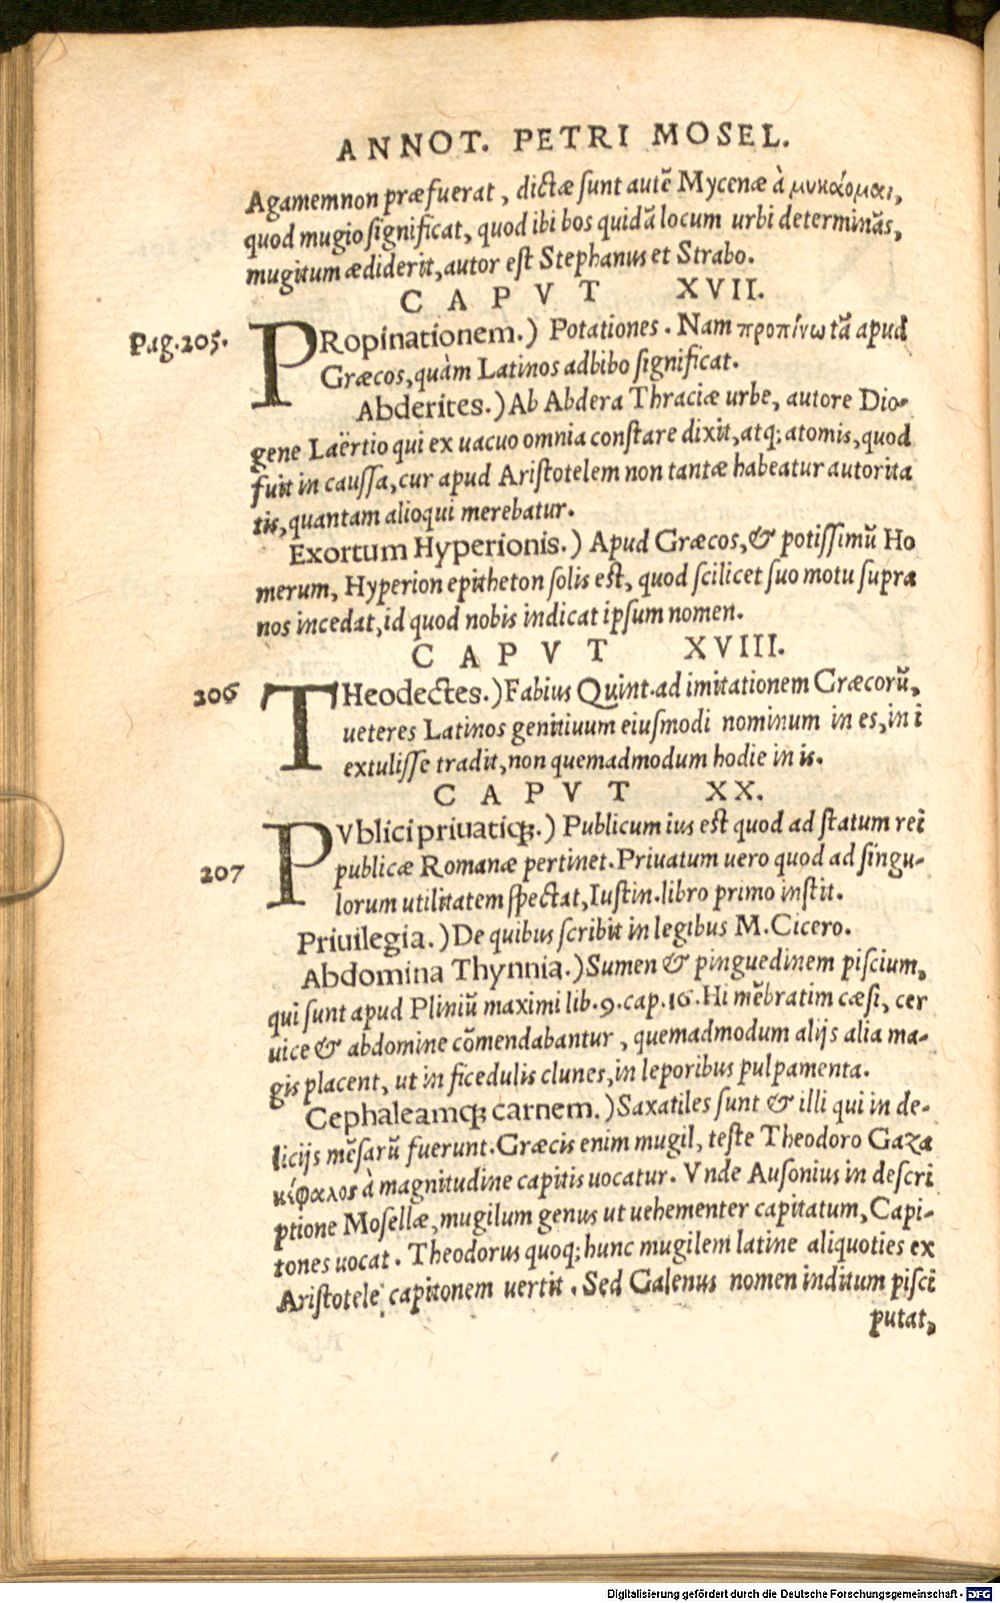 ANNOT. PETRI MOSEL.
Agamemnon præfuerat, dictæ sunt autē Mycenæ à μυκάομαι,
quod mugio significat, quod ibi bos quidā locum urbi determinās,
mugitum ædiderit, autor est Stephanus et Strabo.
CAPVT XVII.
Pag.205.
PRopinationem.) Potationes. Nam προπίνω tā apud
Græcos, quàm Latinos adbibo significat.
Abderites.) Ab Abdera Thraciæ urbe, autore Dio-
gene Laërtio qui ex uacuo omnia constare dixit, atq; atomis, quod
fuit in caussa, cur apud Aristotelem non tantæ habeatur autorita
tis, quantam alioqui merebatur.
Exortum Hyperionis.) Apud Græcos, & potissimū Ho
merum, Hyperion epitheton solis est, quod scilicet suo motu supra
nos incedat, id quod nobis indicat ipsum nomen.
CAPVT XVIII.
206
THeodectes.) Fabius Quint. ad imitationem Græcorū,
ueteres Latinos genitiuum eiusmodi nominum in es, in i
extulisse tradit, non quemadmodum hodie in is.
CAPVT XX.
PVblici priuatiq;.) Publicum ius est quod ad statum rei
207
publicæ Romanæ pertinet. Priuatum uero quod ad singu-
lorum utilitatem spectat, Iustin. libro primo instit.
Priuilegia.) De quibus scribit in legibus M. Cicero.
Abdomina Thynnia.) Sumen & pinguedinem piscium,
qui sunt apud Pliniū maximi lib.9.cap.16. Hi mēbratim cæsi, cer
uice & abdomine cōmendabantur, quemadmodum alijs alia ma-
gis placent, ut in ficedulis clunes, in leporibus pulpamenta.
Cephaleamq; carnem.) Saxatiles sunt & illi qui in de-
licijs mēsarū fuerunt. Græcis enim mugil, teste Theodoro Gaza
κέφαλος à magnitudine capitis uocatur. Vnde Ausonius in descri
ptione Mosellæ, mugilum genus ut uehementer capitatum, Capi-
tones uocat. Theodorus quoq; hunc mugilem latine aliquoties ex
Aristotele capitonem uertit. Sed Galenus nomen inditum pisci
putat,
Digitalisierung gefördert durch die Deutsche Forschungsgemeinschaft - DFG